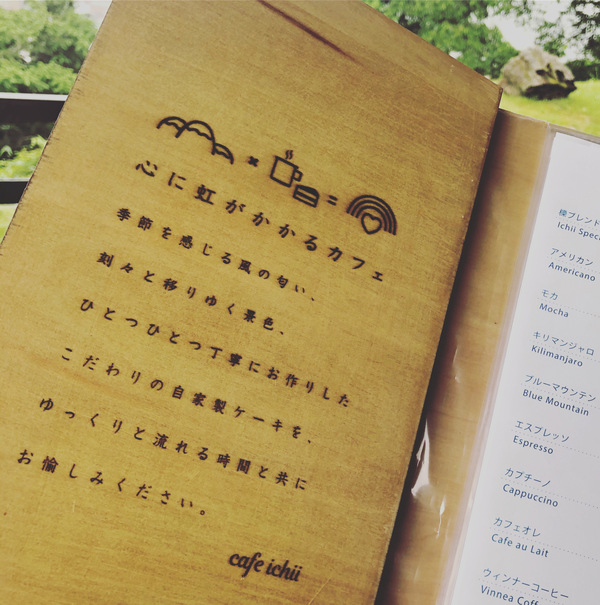 心に虹がかかるカフェ
季節を感じる風の匂い、
刻々と移りゆく景色、
ひとつひとつ丁寧にお作りした
こだわりの自家製ケーキを、
ゆっくりと流れる時間と共に
お愉しみください。
cafe ichii
櫟ブレンド
Ichii Speci
アメリカン
Americano
モカ
Mocha
キリマンジャロ
Kilimanjaro
ブルーマウンテン
Blue Mountain
エスプレッソ
Espresso
カプチーノ
Cappuccino
カフェオレ
Cafe au Lait
ウィンナーコーヒー
Vinnea Coff